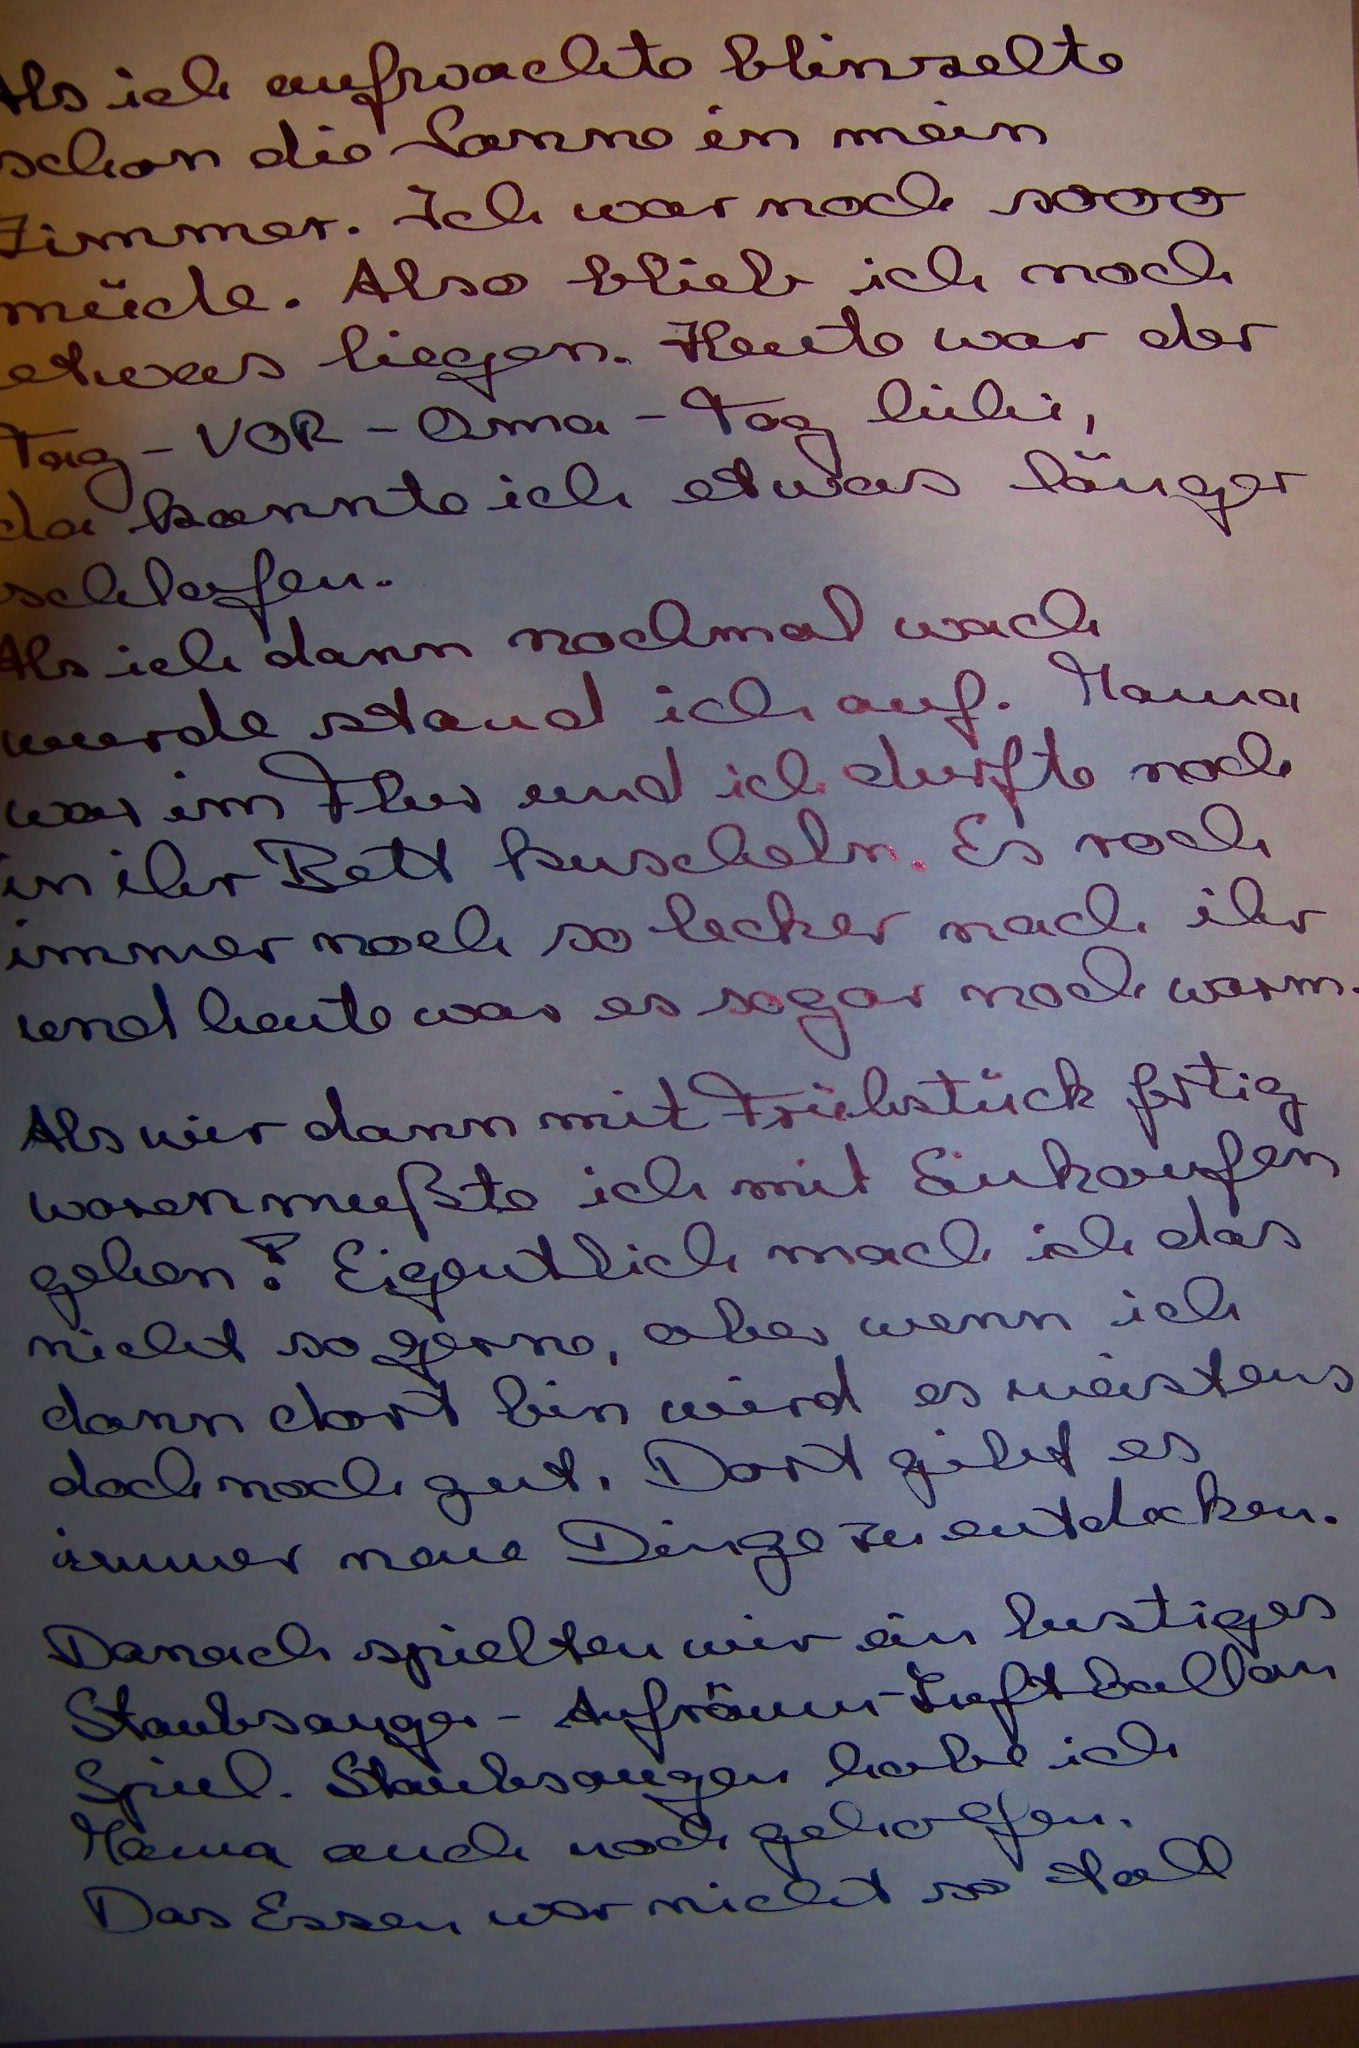 Als ich aufwachte blinzelte
schon die Sonne in mein
Zimmer. Ich war noch sooo
müde. Also blieb ich noch
etwas liegen. Heute war der
Tag - VOR - Oma - Tag hihi,
da konnte ich etwas länger
schlafen.
Als ich dann nochmal wach
wurde stand ich auf. Mama
war im Flur und ich durfte noch
in ihr Bett kuscheln. Es roch
immer noch so lecker nach ihr
und heute war es sogar noch warm.
Als wir dann mit Frühstück fertig
waren mußte ich mit Einkaufen
gehen? Eigentlich mach ich das
nicht so gerne, aber wenn ich
dann dort bin wird es meistens
doch noch gut. Dort gibt es
immer neue Dinge zu entdecken.
Danach spielten wir ein lustiges
Staubsauger - Aufräum-Luftballon
Spiel. Staubsaugen habe ich
Mama auch noch geholfen.
Das Essen war nicht so toll